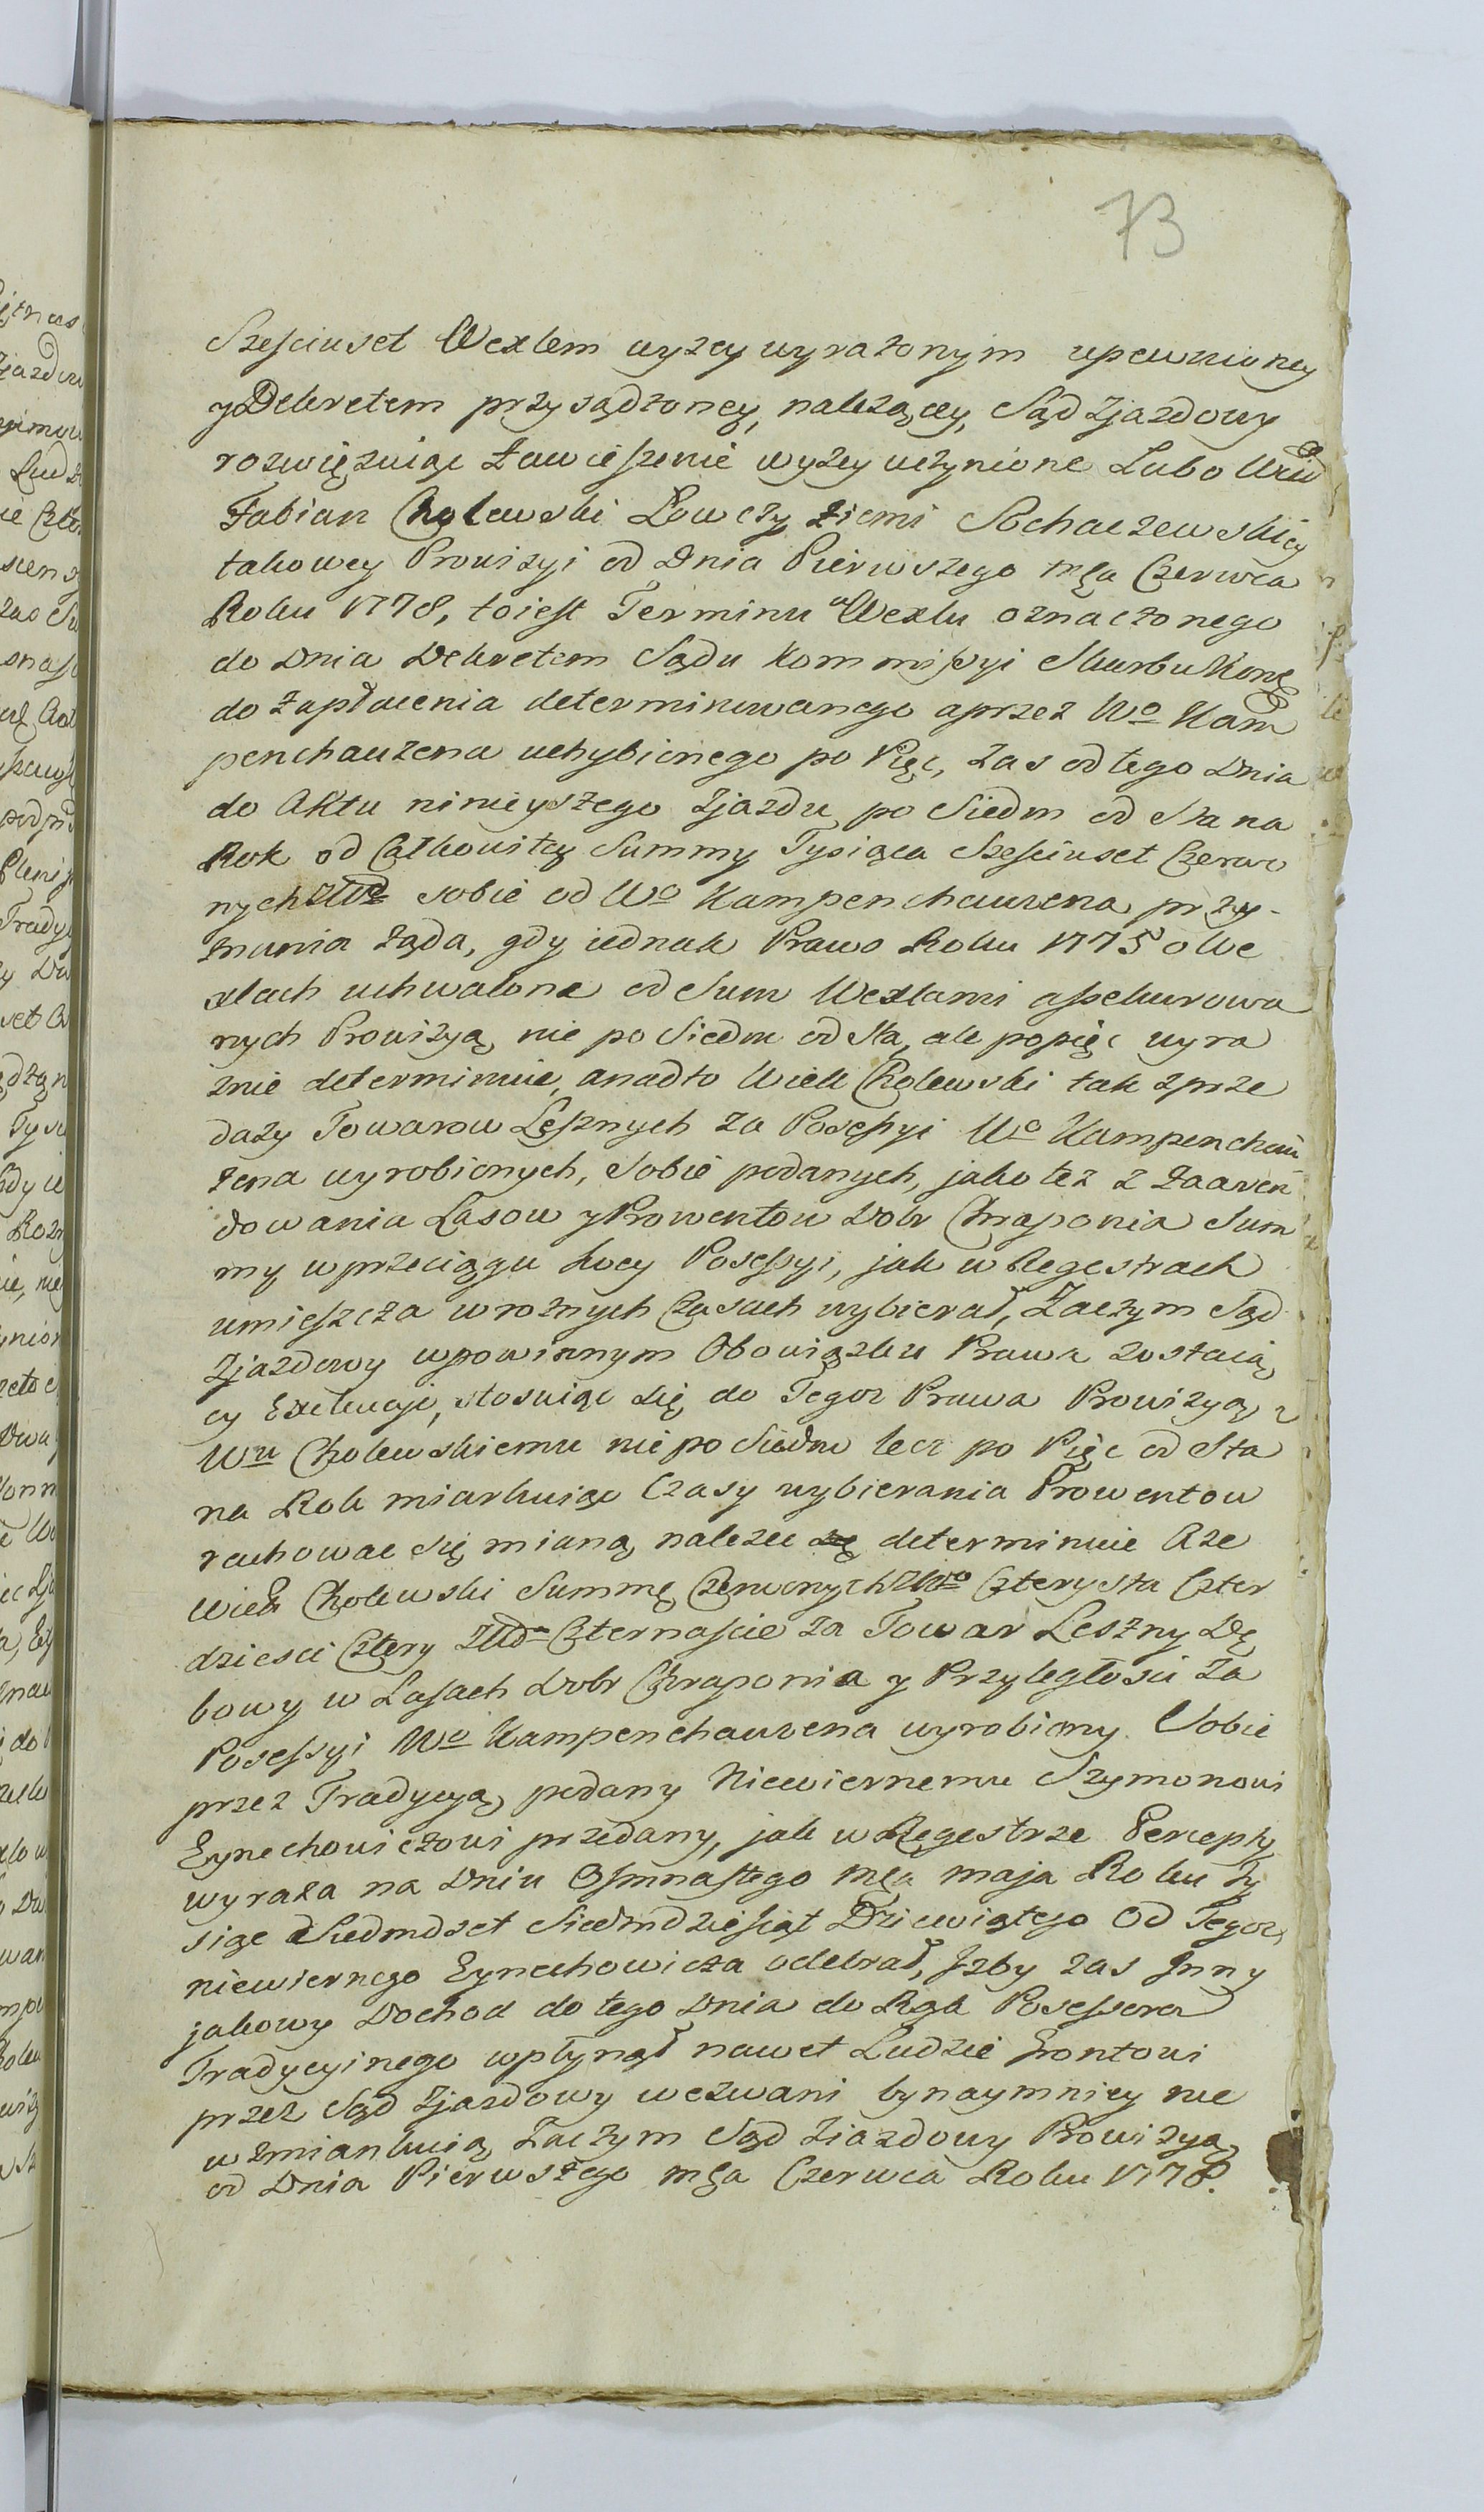 73
Szesciuset Wexlem wyzey wyrazonym upewnioney
y Dekretem przysądzoney, nalezącey, Sąd Zjazdowy
rozwięzuiąc Zawieszenie wyzey uczynione Lubo
Fabian Cholewski Łowczy Ziemi Sochaczewskiey
takowey Prowizyi od Dnia Pierwszego mca Czerwca
Roku 1778, toiest Terminu Wexlu oznaczonego
do Dnia Dekretem Sądu Kommissyi Skarbu
do zapłacenia determinowanego a przez Wo Kam
penchauzena uchybionego po Pięc, zas od tego Dnia
do Aktu ninieyszego Zjazdu po Siedm od Sta na
Rok od Całkowitey Summy Tysiąca Szesciuset Czerwo
nych Złłch sobie od Wo Kampenchauzena przy-
znania ząda, gdy iednak Prawo Roku 1775 o We
xlach uchwalone od Sum Wexlami assekurowa
nych Prowizyą nie po Siedm od Sta, ale po pięc wyra
znie determinuie, a nadto Wiell Cholewski tak z prze
dazy Towarow Lesznych za Possessyi Wo Kampenchau
zena wyrobionych, Sobie podanych, jako tez z zaaren
dowania Lasow y Prowentow Dobr Chraponia Sum
my w przeciągu swey Possessyi, jak w Regestrach
umieszcza w roznych Czasach wybierał, Zaczym Sąd
Zjazdowy w powinnym Obowiązku Prawa zostaią
cy Exekucyi, stosuiąc się do Tegoz Prawa Prowizyą
Wu Cholewskiemu nie po Siedm lecz po Pięc od Sta
na Rok miarkuiąc Czasy wybierania Prowentow
rachowac się mianą nalezec determinuie A ze
Wiell Cholewski Summę Czerwonych Złłch Czterysta Czter
dziesci Cztery Złłch Czternascie za Towar Leszny Dę
bowy w Lasach Dobr Chraponia y Przyległosci za
Possessyi Wo Kampenchauzena wyrobiony Sobie
przez Tradycyą podany Niewiernemu Szymonowi
Eynechowiczowi przedany, jak w Regestrze Percepty
wyraza na Dniu Osmnastego mca maja Roku Ty
siąc Siedmdset Siedmdziesiąt Dziewiątego Od Tegoz
niewiernego Eynechowicza odebrał, Izby zas Inny
jakowy Dochod do tego Dnia do Rąk Possessora
Tradycyinego wpłynął nawet Ludzie Grontowi
przez Sąd Zjazdowy wezwani bynaymniey nie
wzmiankuią Zaczym Sąd Ziazdowy Prowizyą
od Dnia Pierwszego mca Czerwca Roku 1778.